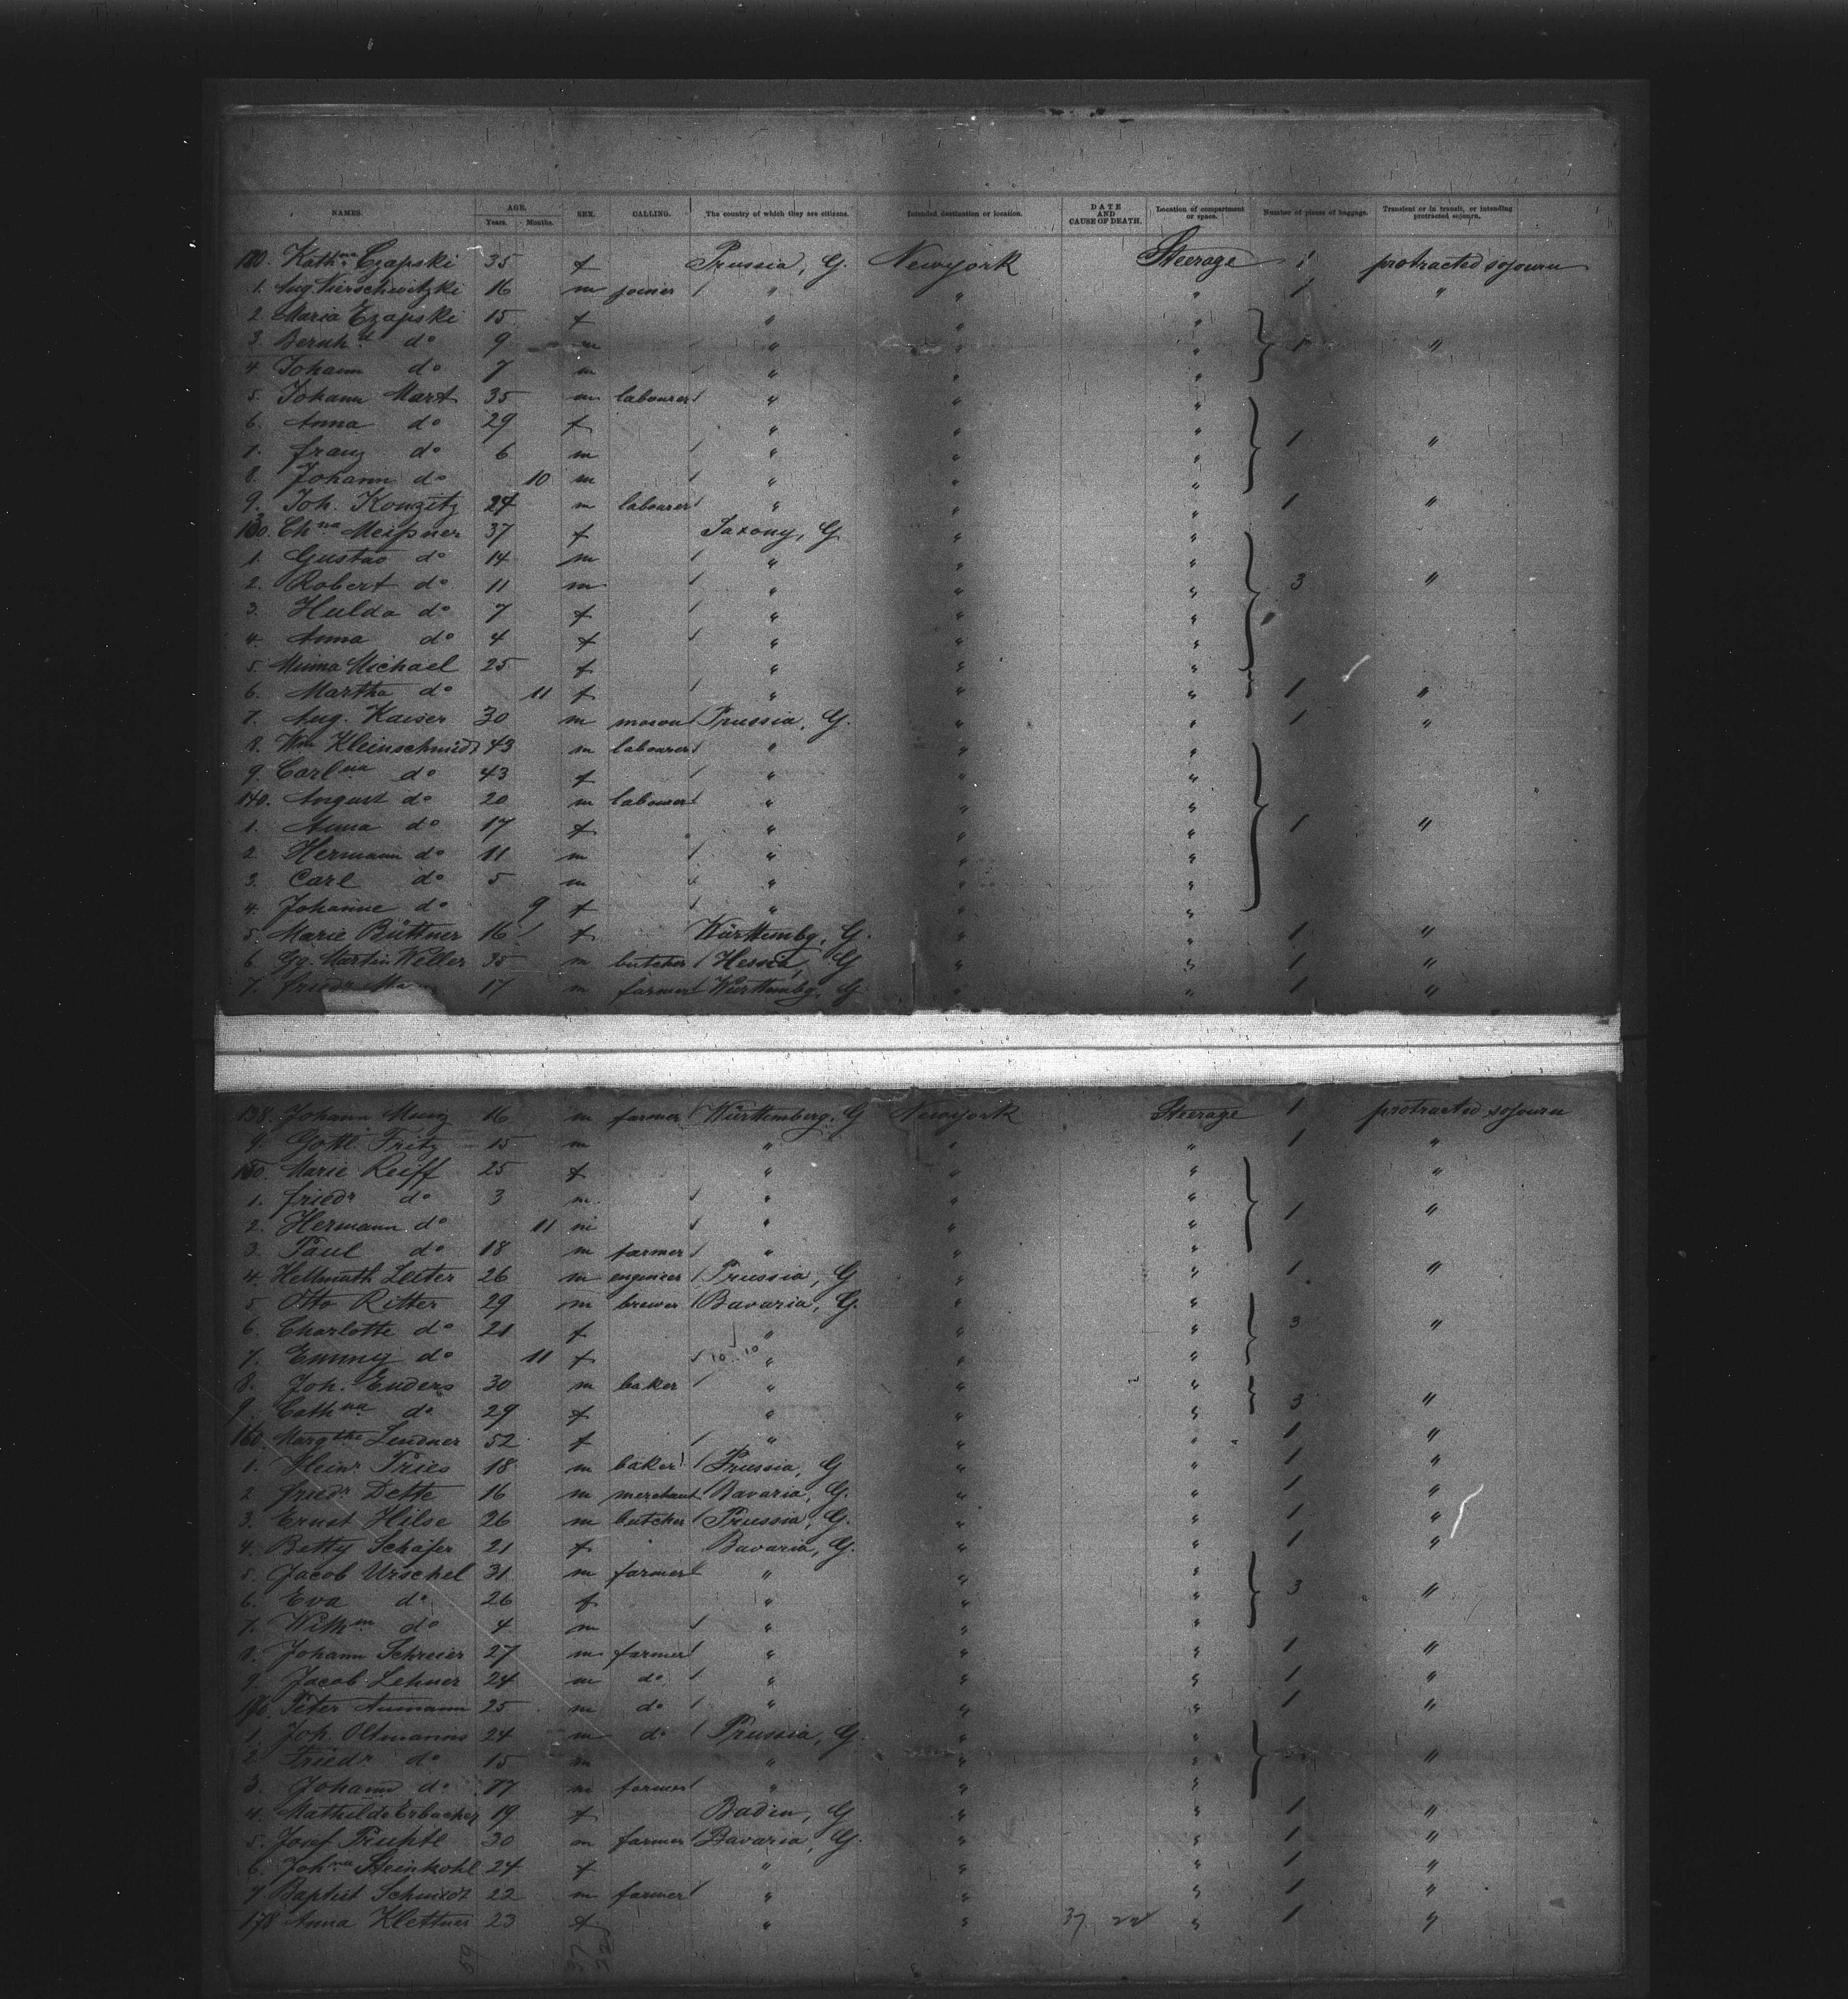 NAMES. AGE. SEX. CALLING. The country of which they are citizens. Intended destination or location. DATE AND CAUSE OF DEATH. Location of compartment or space. Number of pieces of baggage. Transient or in transit, or intending protracted sojourn.
Years. Months.
120. Kathna Czapski 35 f Prussia, G. Newyork Steerage 1 protracted sojourn
1. Aug. Vierschwitzki 16 m joiner / " " " 1 "
2. Maria Czapski 15 f " " "
3. Bernhd do 9 m " " " 1 "
4. Johann do 7 m " " "
5. Johann Mart 35 m labourer / " " "
6. Anna do 29 f " " " 1 "
7. Franz do 6 m / " " "
8. Johann do 10 m / " " "
9. Joh. Konzitz 24 m labourer / " " " 1 "
130. Chna Meißner 37 f Saxony, G. " "
1. Gustav do 14 m / " " "
2. Robert do 11 m / " " " 3 "
3. Hulda do 7 f / " " "
4. Anna do 4 f / " " "
5. Minna Michael 25 f " " "
6. Martha do 11 f / " " " 1 "
7. Aug. Kaiser 30 m mason / Prussia, G. " " 1 "
8. Wm Kleinschmidt 43 m labourer / " " "
9. Carlna do 43 f / " " "
140. August do 20 m labourer / " " "
1. Anna do 17 f " " " 1 "
2. Hermann do 11 m / " " "
3. Carl do 5 m / " " "
4. Johanne do 9 f / " " "
5. Marie Büttner 16 f Württembg, G. " " 1 "
6. Gg. Martin Weller 35 m butcher / Hessia, G " " 1 "
7. Friedr 17 m farmer / Württembg, G. " " 1 "
138. Johann Munz 16 m farmer / Württemberg, G Newyork Steerage 1 protracted sojourn
9. Gottl. Fritz 15 m " " " 1 "
150. Marie Reiff 25 f " " " "
1. Friedr do 3 m. / " " "
2. Hermann do 11 m / " " " 1 "
3. Paul do 18 m farmer / " " "
4. Hellmuth Leiter 26 m engineer / Prussia, G " " 1 "
5. Otto Ritter 29 m brewer / Bavaria, G. " "
6. Charlotte do 21 f " " " 3 "
7. Emmy do 11 f / " " "
8. Joh. Enders 30 m baker / " " "
9. Cathna do 29 f " " " 3 "
160. Margthe Lindner 52 f / " " " 1 "
1. Heinr. Fries 18 m baker / Prussia, G " " 1 "
2. Friedr Dette 16 m merchant / Bavaria, G. " " 1 "
3. Ernst Hilse 26 m butcher / Prussia, G. " " 1 "
4. Betty Schäfer 21 f Bavaria, G. " " 1 "
5. Jacob Urschel 31 m farmer / " " "
6. Eva do 26 f " " " 3 "
7. Wilhm do 4 m / " " "
8. Johann Schreier 27 m farmer / " " " 1 "
9. Jacob Lehner 24 m do / " " " 1 "
170. Peter Aumann 25 m do / " " " 1 "
1. Joh. Oltmanns 24 m do / Prussia, G. " "
2. Friedr do 15 m " " " "
3. Johann do 77 m farmer / " " "
4. Mathilde Erbacher 19 f Baden, G " " 1 "
5. Josef 30 m farmer / Bavaria, G. " " 1 "
6. Johna Steinkohl 24 f " " " 1 "
7. Baptist Schmidt 22 m farmer / " " " 1 "
178 Anna Klettner 23 f " " 37 22 " 1 "
59 37 22